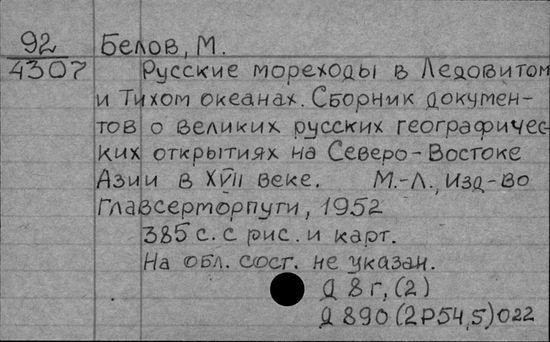 92 Белов, М.
4307 Русские мореходы в Ледовитом
и Тихом океанах. Сборник докумен-
тов о великих русских географичес-
ких открытиях на Северо-Востоке
Азии в XVII веке. М.-Л., Изд-во
Главсерморпути, 1952
385 с. с рис. и карт.
На обл. сост. не указан.
Д 8 г, (2)
Д 890 (2Р54,5) 022